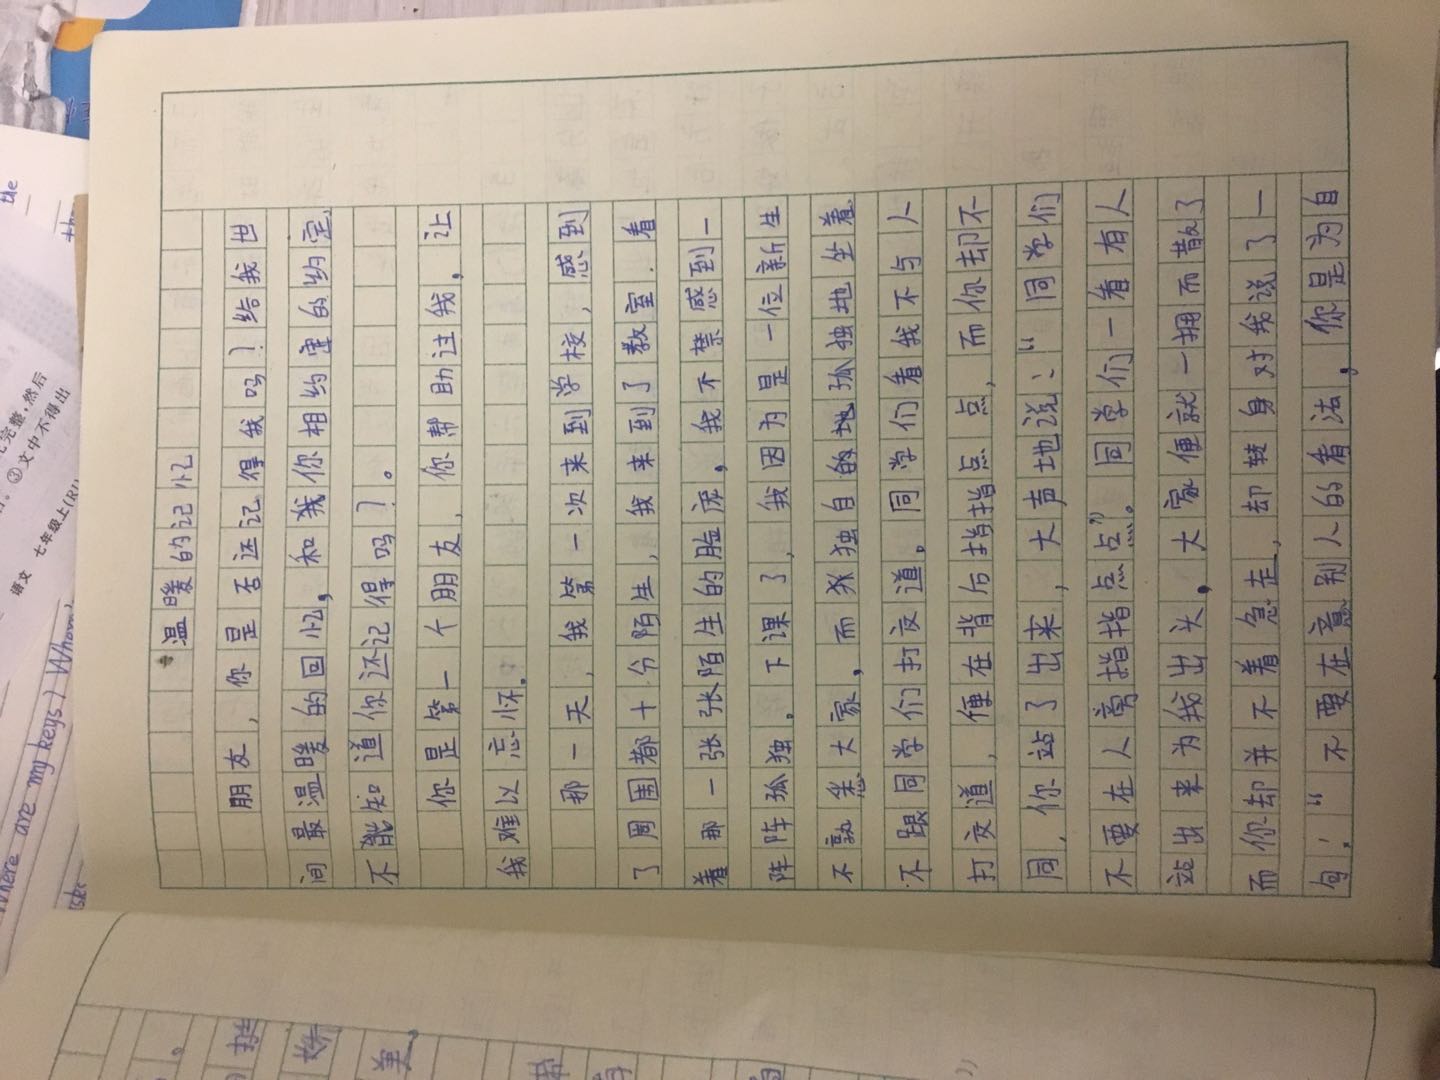 温暖的记忆
朋友，你是否还记得我吗？给我世
间最温暖的回忆，和我你相约定的约定，
不能知道你还记得吗？。
你是第一个朋友，你帮助过我，让
我难以忘怀。
那一天，我第一次来到学校，感到
了周围都十分陌生，我来到了教室．看
着那一张张陌生的脸庞，我不禁感到一
阵阵孤独．下课了，我因为是一位新生
不熟悉大家，而独自的地孤独地坐着
不跟同学们打交道。同学们看我不与人
打交道，便在背后指指点点，而你却不
同，你站了出来，大声地说：“同学们
不要在人旁指指点点”。同学们一看有人
站出来为我出头，大家便就一拥而散了
而你却并不着急走，却转身对我说了一
句：“不要在意别人的看法，你是为自
the
Where are my keys? Whom
完整，然后
③文中不得出
语文 七年级上(RJ)